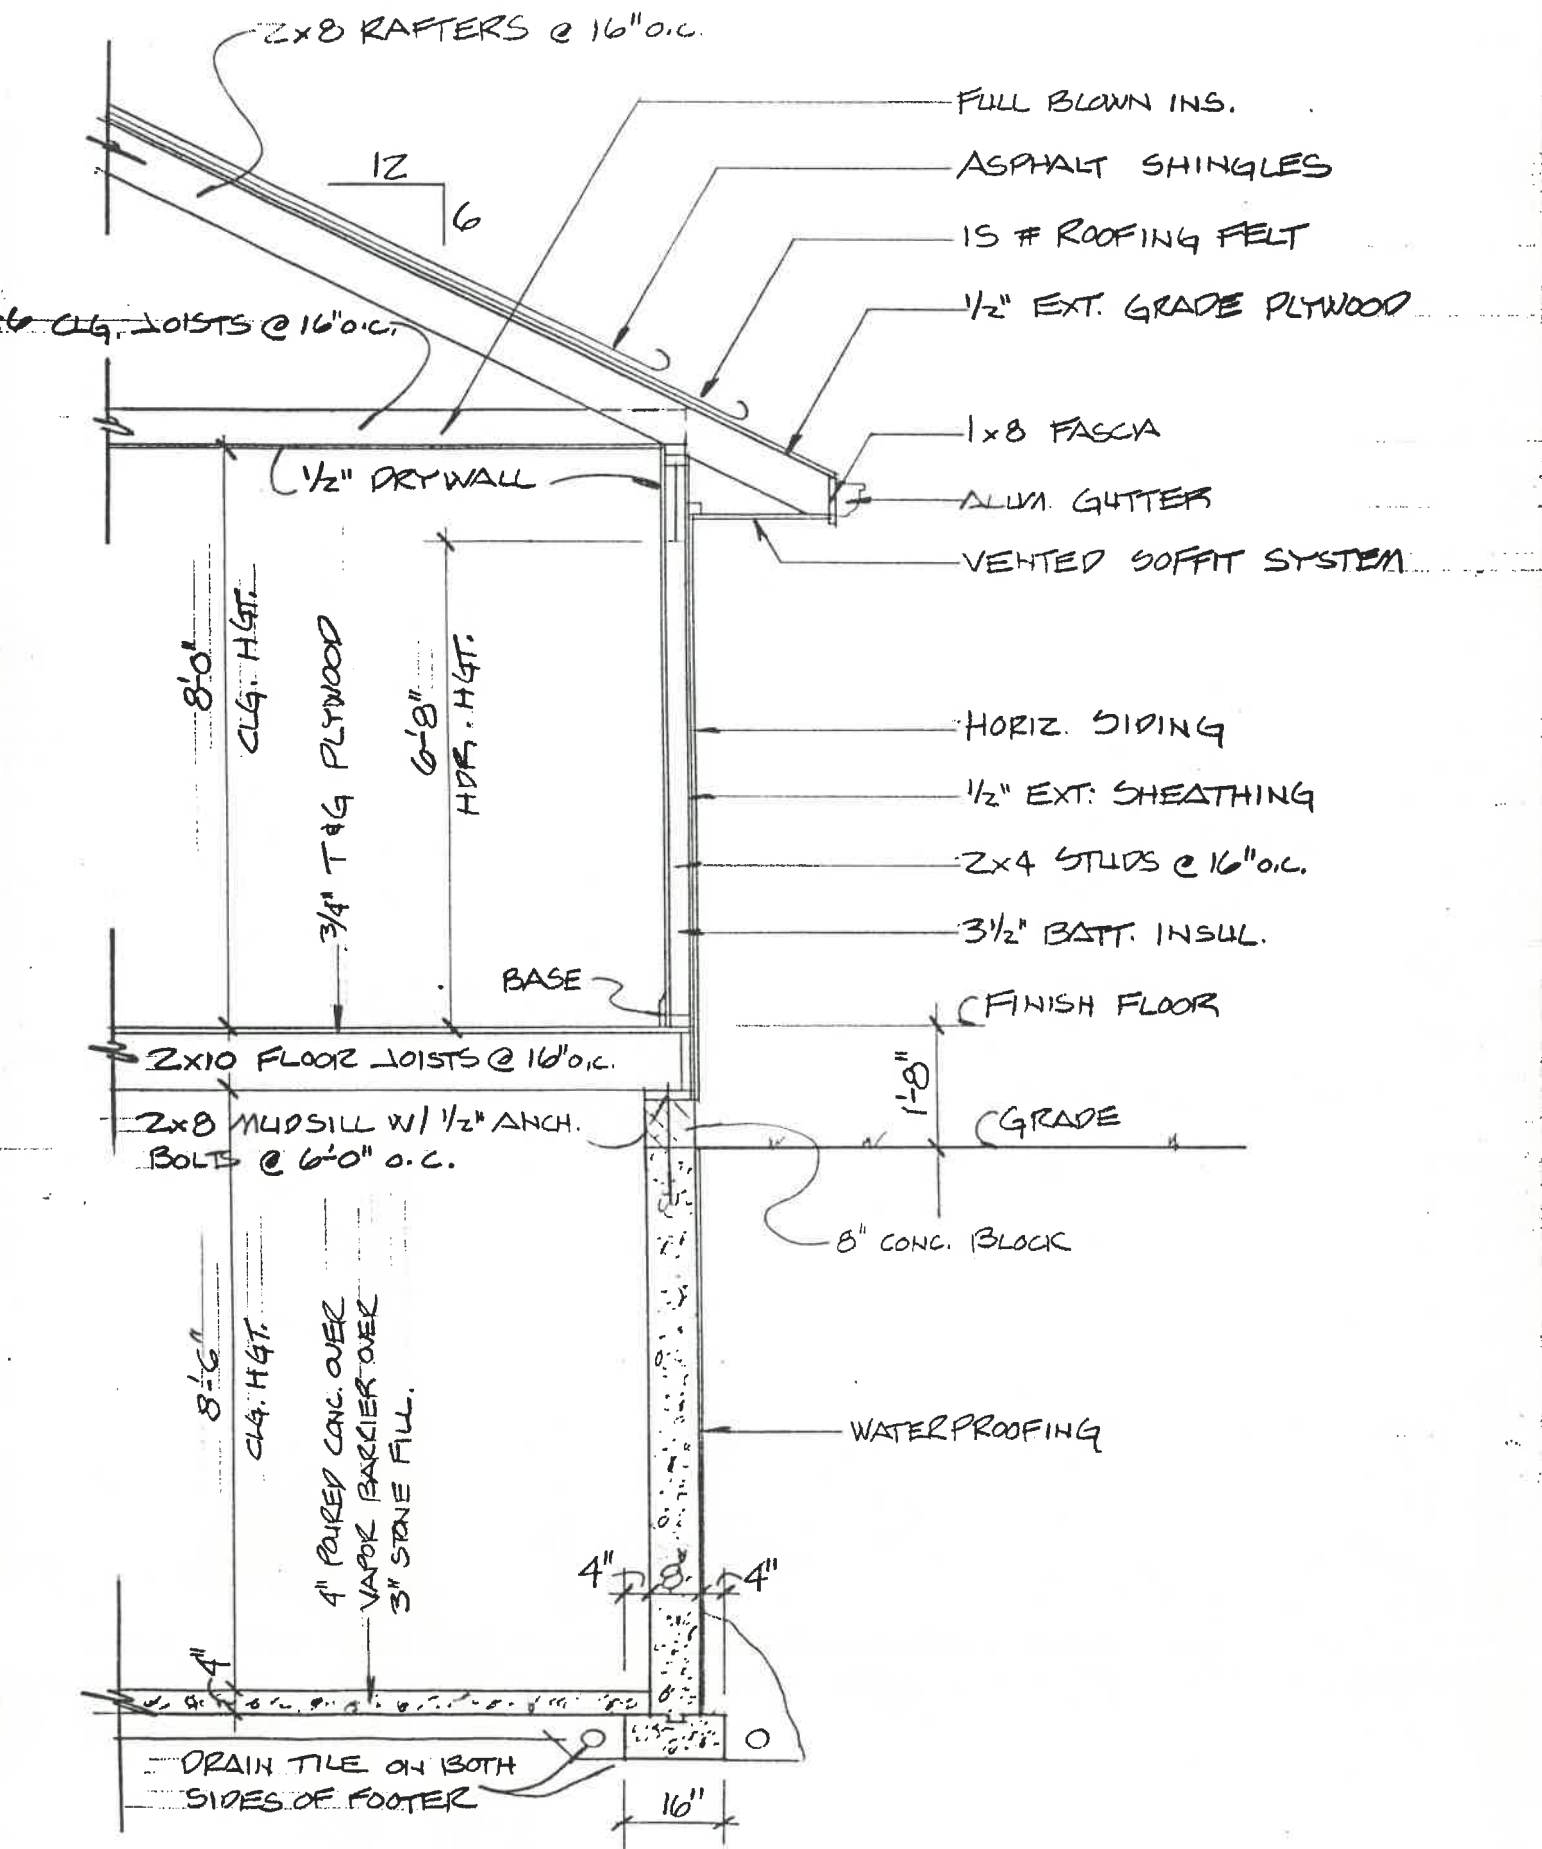 2x8 RAFTERS @ 16" O.C.
FULL BLOWN INS.
ASPHALT SHINGLES
12
6
15 # ROOFING FELT
1/2" EXT. GRADE PLYWOOD
6 CLG. JOISTS @ 16" O.C.
1x8 FASCIA
1/2" DRYWALL
ALUM. GUTTER
VENTED SOFFIT SYSTEM
8'-0"
CLG. HGT.
3/4" T&G PLYWOOD
6'-8"
HDR. HGT.
HORIZ. SIDING
1/2" EXT. SHEATHING
2x4 STUDS @ 16" O.C.
3 1/2" BATT. INSUL.
BASE
FINISH FLOOR
2x10 FLOOR JOISTS @ 16" O.C.
1'-8"
2x8 MUDSILL W/ 1/2" ANCH.
BOLTS @ 6'-0" O.C.
GRADE
8" CONC. BLOCK
8'-6"
CLG. HGT.
4" POURED CONC. OVER
VAPOR BARRIER OVER
3" STONE FILL.
WATERPROOFING
4" 8" 4"
4"
DRAIN TILE ON BOTH
SIDES OF FOOTER
16"